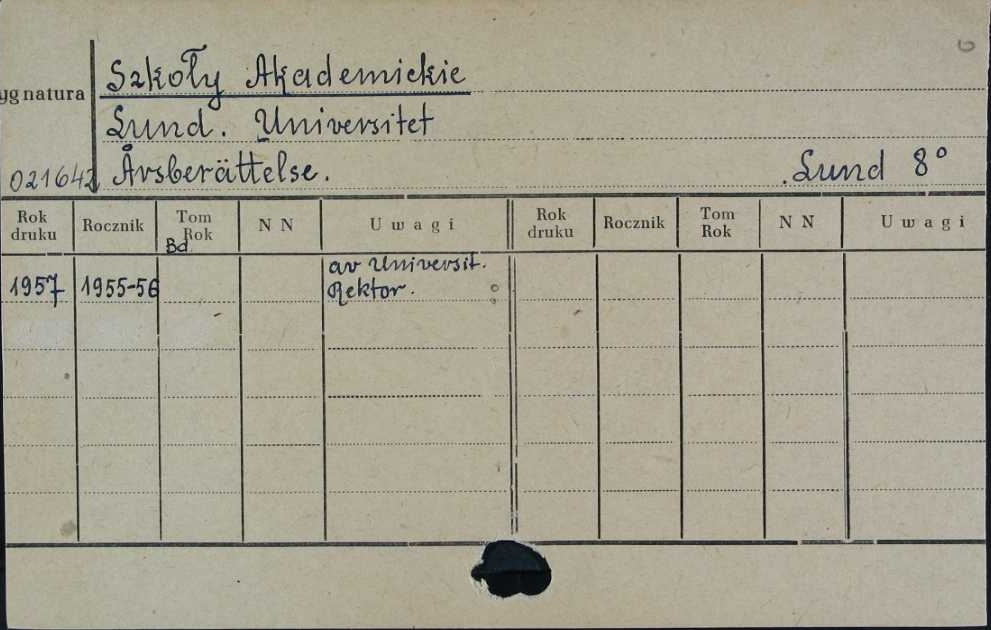 Szkoły Akademickie
ygnatura
Lund. Universitet
021642 Årsberättelse. Lund 8°
Rok druku Rocznik Tom Rok Bd NN Uwagi Rok druku Rocznik Tom Rok NN Uwagi
av Universit.
1957 1955-56 Rektor.